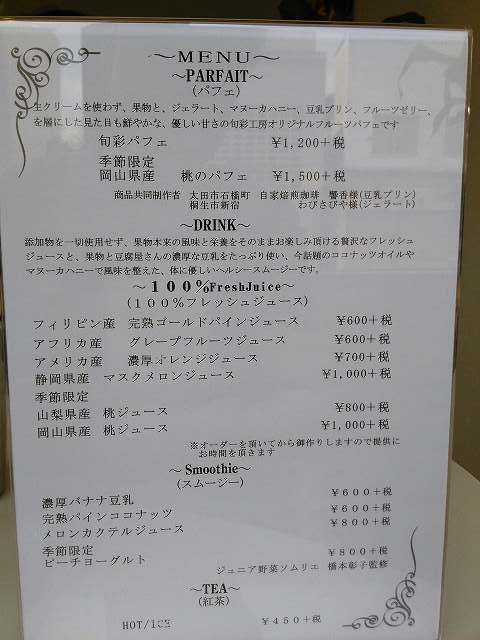 ～MENU～
～PARFAIT～
(パフェ)
生クリームを使わず、果物と、ジェラート、マヌーカハニー、豆乳プリン、フルーツゼリー、
を層にした見た目も鮮やかな、優しい甘さの旬彩工房オリジナルフルーツパフェです
旬彩パフェ ￥1,200＋税
季節限定
岡山県産 桃のパフェ ￥1,500＋税
商品共同制作者 太田市石橋町 自家焙煎珈琲 響香様(豆乳プリン)
桐生市新宿 わびさびや様(ジェラート)
～DRINK～
添加物を一切使用せず、果物本来の風味と栄養をそのままお楽しみ頂ける贅沢なフレッシュ
ジュースと、果物と豆腐屋さんの濃厚な豆乳をたっぷり使い、今話題のココナッツオイルや
マヌーカハニーで風味を整えた、体に優しいヘルシースムージーです。
～１００％FreshJuice～
(１００％フレッシュジュース)
フィリピン産 完熟ゴールドパインジュース ￥600＋税
アフリカ産 グレープフルーツジュース ￥600＋税
アメリカ産 濃厚オレンジジュース ￥700＋税
静岡県産 マスクメロンジュース ￥1,000＋税
季節限定
山梨県産 桃ジュース ￥800＋税
岡山県産 桃ジュース ￥1,000＋税
※オーダーを頂いてから御作りしますので提供に
お時間を頂きます
～Smoothie～
(スムージー)
濃厚バナナ豆乳 ￥600＋税
完熟パインココナッツ ￥600＋税
メロンカクテルジュース ￥800＋税
季節限定
ピーチヨーグルト ￥800＋税
ジュニア野菜ソムリエ 橋本彰子監修
～TEA～
(紅茶)
HOT/ICE ￥450＋税